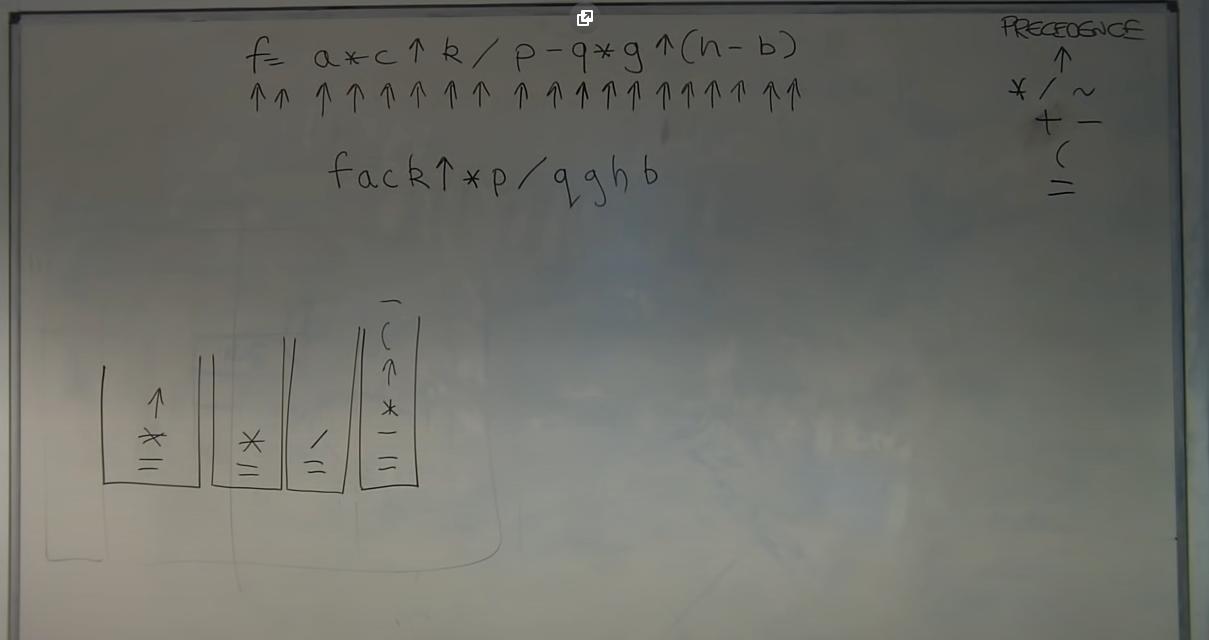 f= a*c↑k/p-q*g↑(h-b)
↑↑ ↑↑↑↑↑↑ ↑↑↑↑↑↑↑↑↑↑↑
fack↑*p/qghb
PRECEDENCE
↑
* / ~
+ -
(
=
↑
*
=
*
=
/
=
-
(
↑
*
-
=